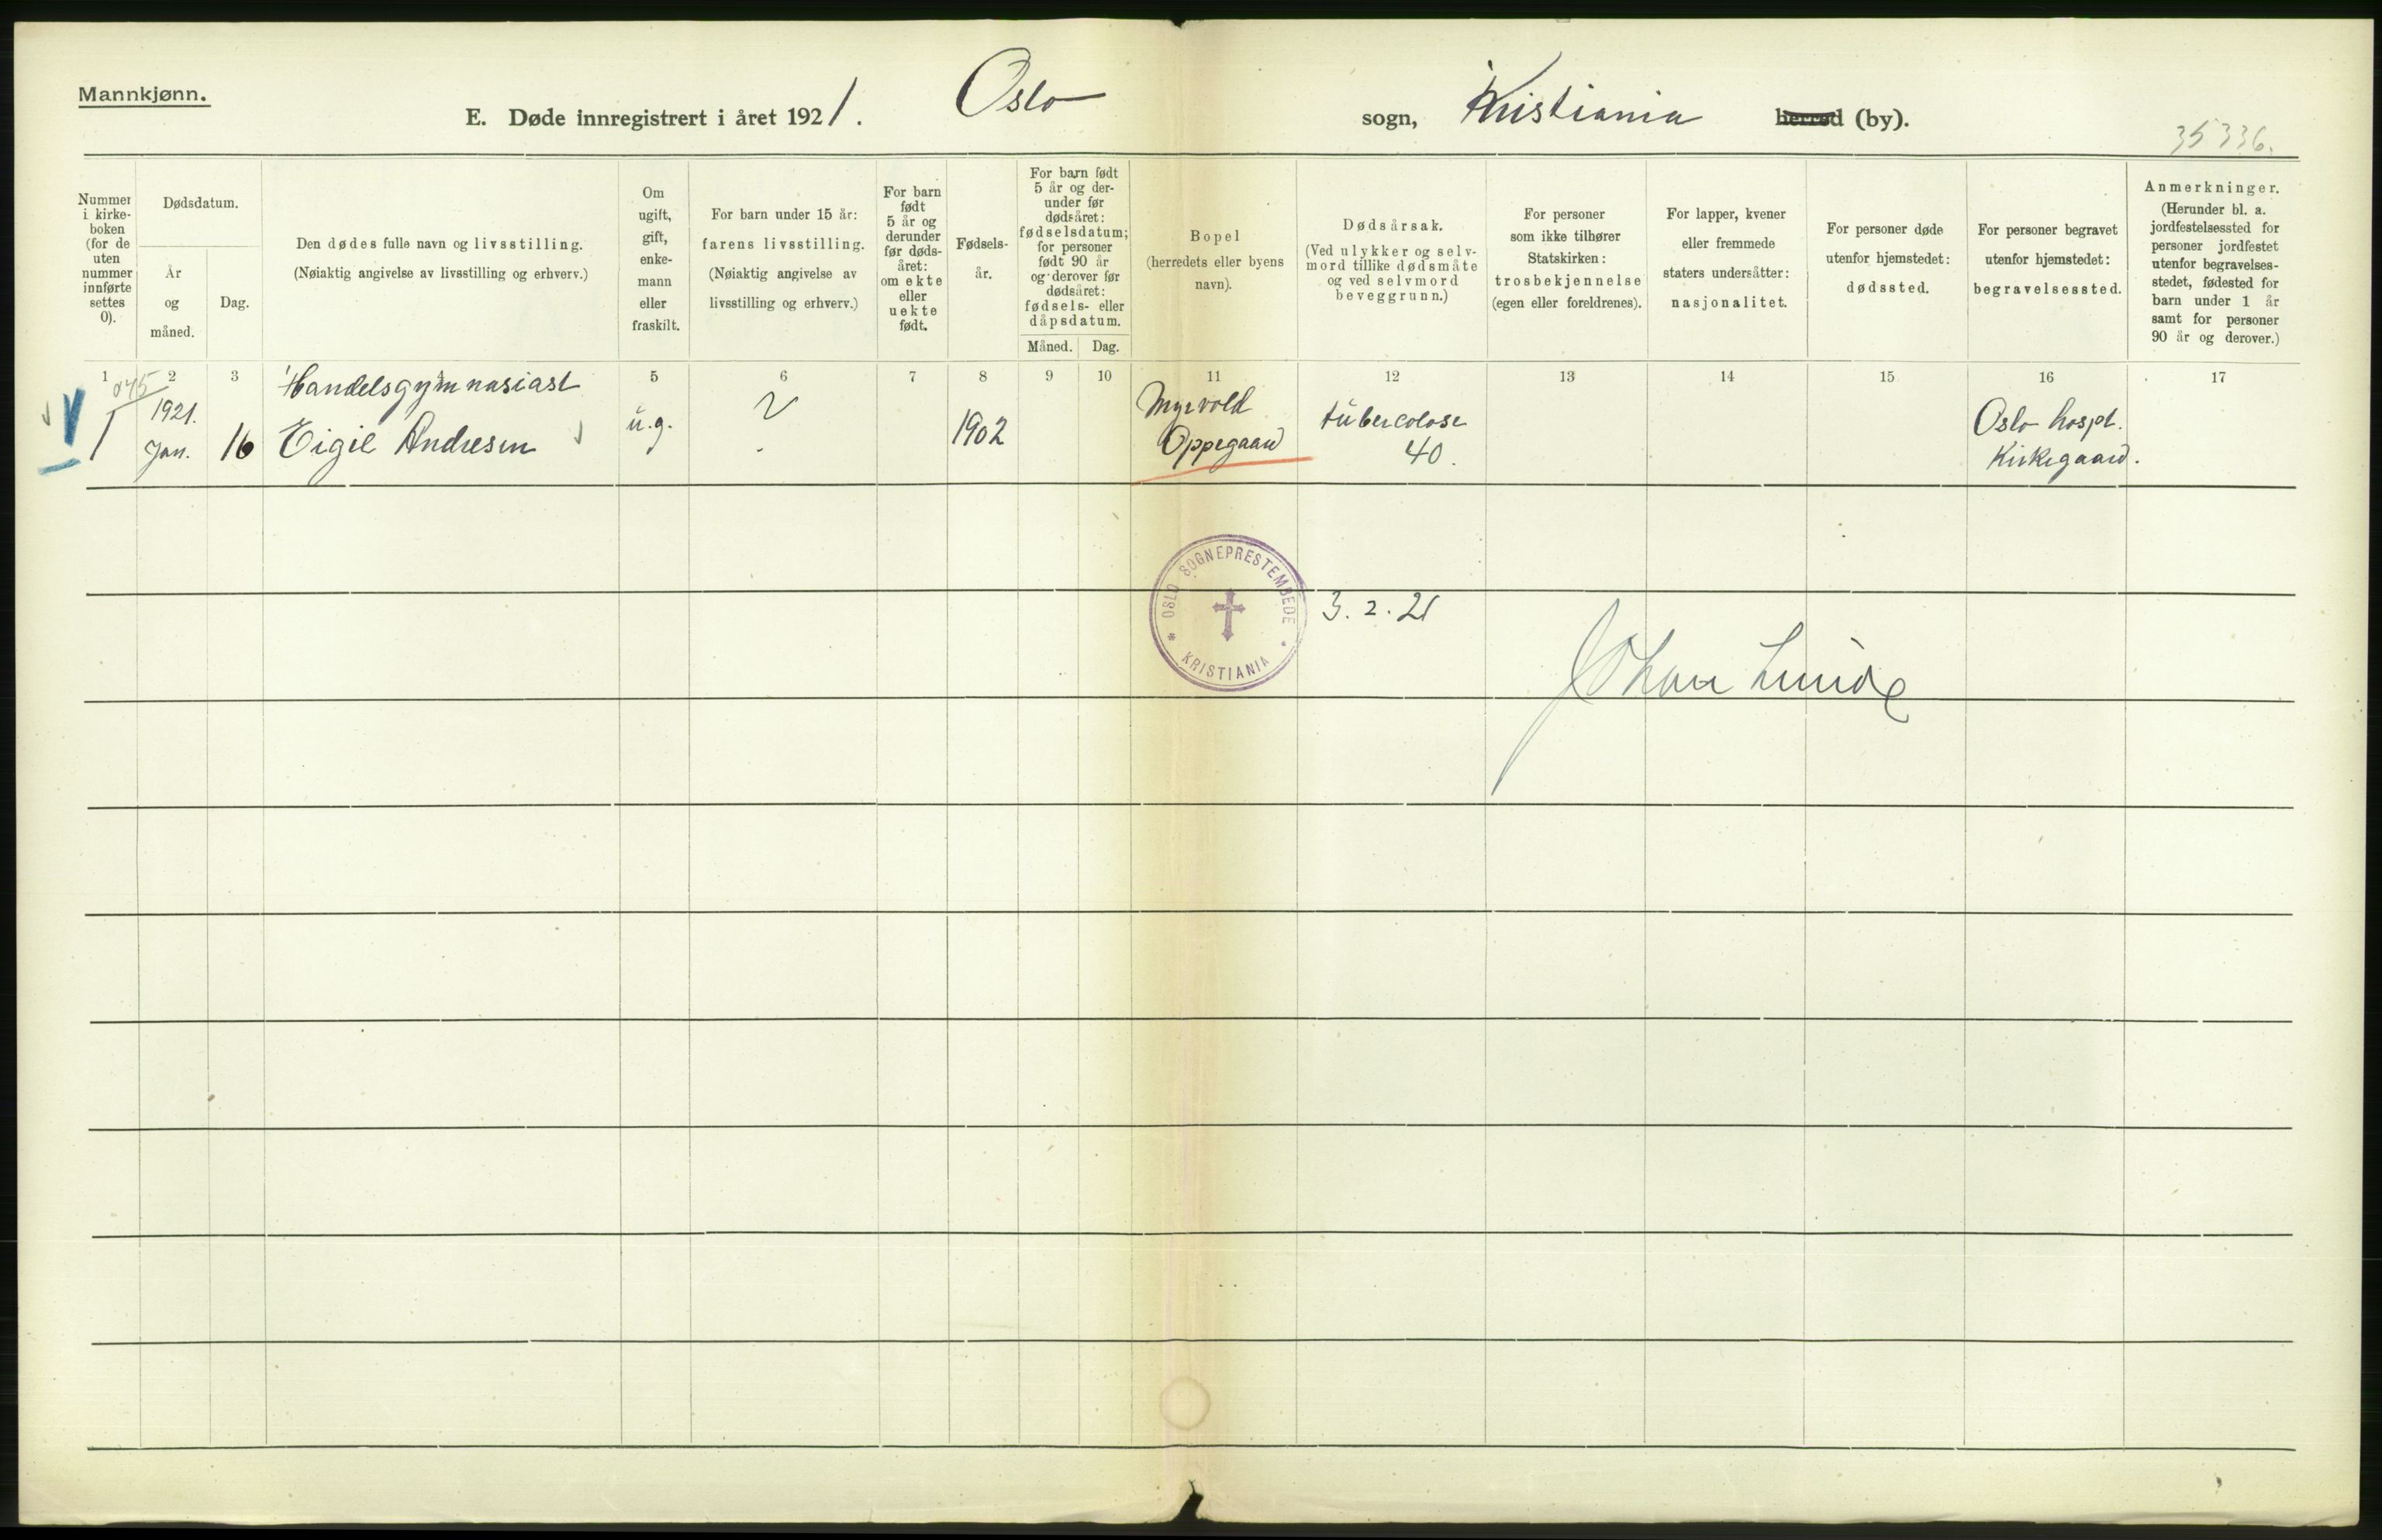 Mannkjønn.
E. Døde innregistrert i året 1921. Oslo sogn, Kristiania herred (by).
35336.
Nummer
i kirke-
boken
(for de
uten
nummer
innførte
settes
0).
Dødsdatum.
År
og
måned.
Dag.
Den dødes fulle navn og livsstilling.
(Nøiaktig angivelse av livsstilling og erhverv.)
Om
ugift,
gift,
enke-
mann
eller
fraskilt.
For barn under 15 år:
farens livsstilling.
(Nøiaktig angivelse av
livsstilling og erhverv.)
For barn
født
5 år og
derunder
før døds-
året:
om ekte
eller
uekte
født.
Fødsels-
år.
For barn født
5 år og der-
under før
dødsåret:
fødselsdatum;
for personer
født 90 år
og derover før
dødsåret:
fødsels- eller
dåpsdatum.
Måned. Dag.
Bopel
(herredets eller byens
navn).
Dødsårsak.
(Ved ulykker og selv-
mord tillike dødsmåte
og ved selvmord
beveggrunn.)
For personer
som ikke tilhører
Statskirken:
trosbekjennelse
(egen eller foreldrenes).
For lapper, kvener
eller fremmede
staters undersåtter:
nasjonalitet.
For personer døde
utenfor hjemstedet:
dødssted.
For personer begravet
utenfor hjemstedet:
begravelsessted.
Anmerkninger.
(Herunder bl. a.
jordfestelsessted for
personer jordfestet
utenfor begravelses-
stedet, fødested for
barn under 1 år
samt for personer
90 år og derover.)
1 2 3 4 5 6 7 8 9 10 11 12 13 14 15 16 17
1
1921.
Jan.
16
Handelsgymnasiast
Eigil Andresen
u.g.
1902
Myrvold
Oppegaard
tubercolose
40.
Oslo hospt.
Kirkegaard.
OSLO SOGNEPRESTEMBEDE
* KRISTIANIA *
3. 2. 21
Johan Lunde